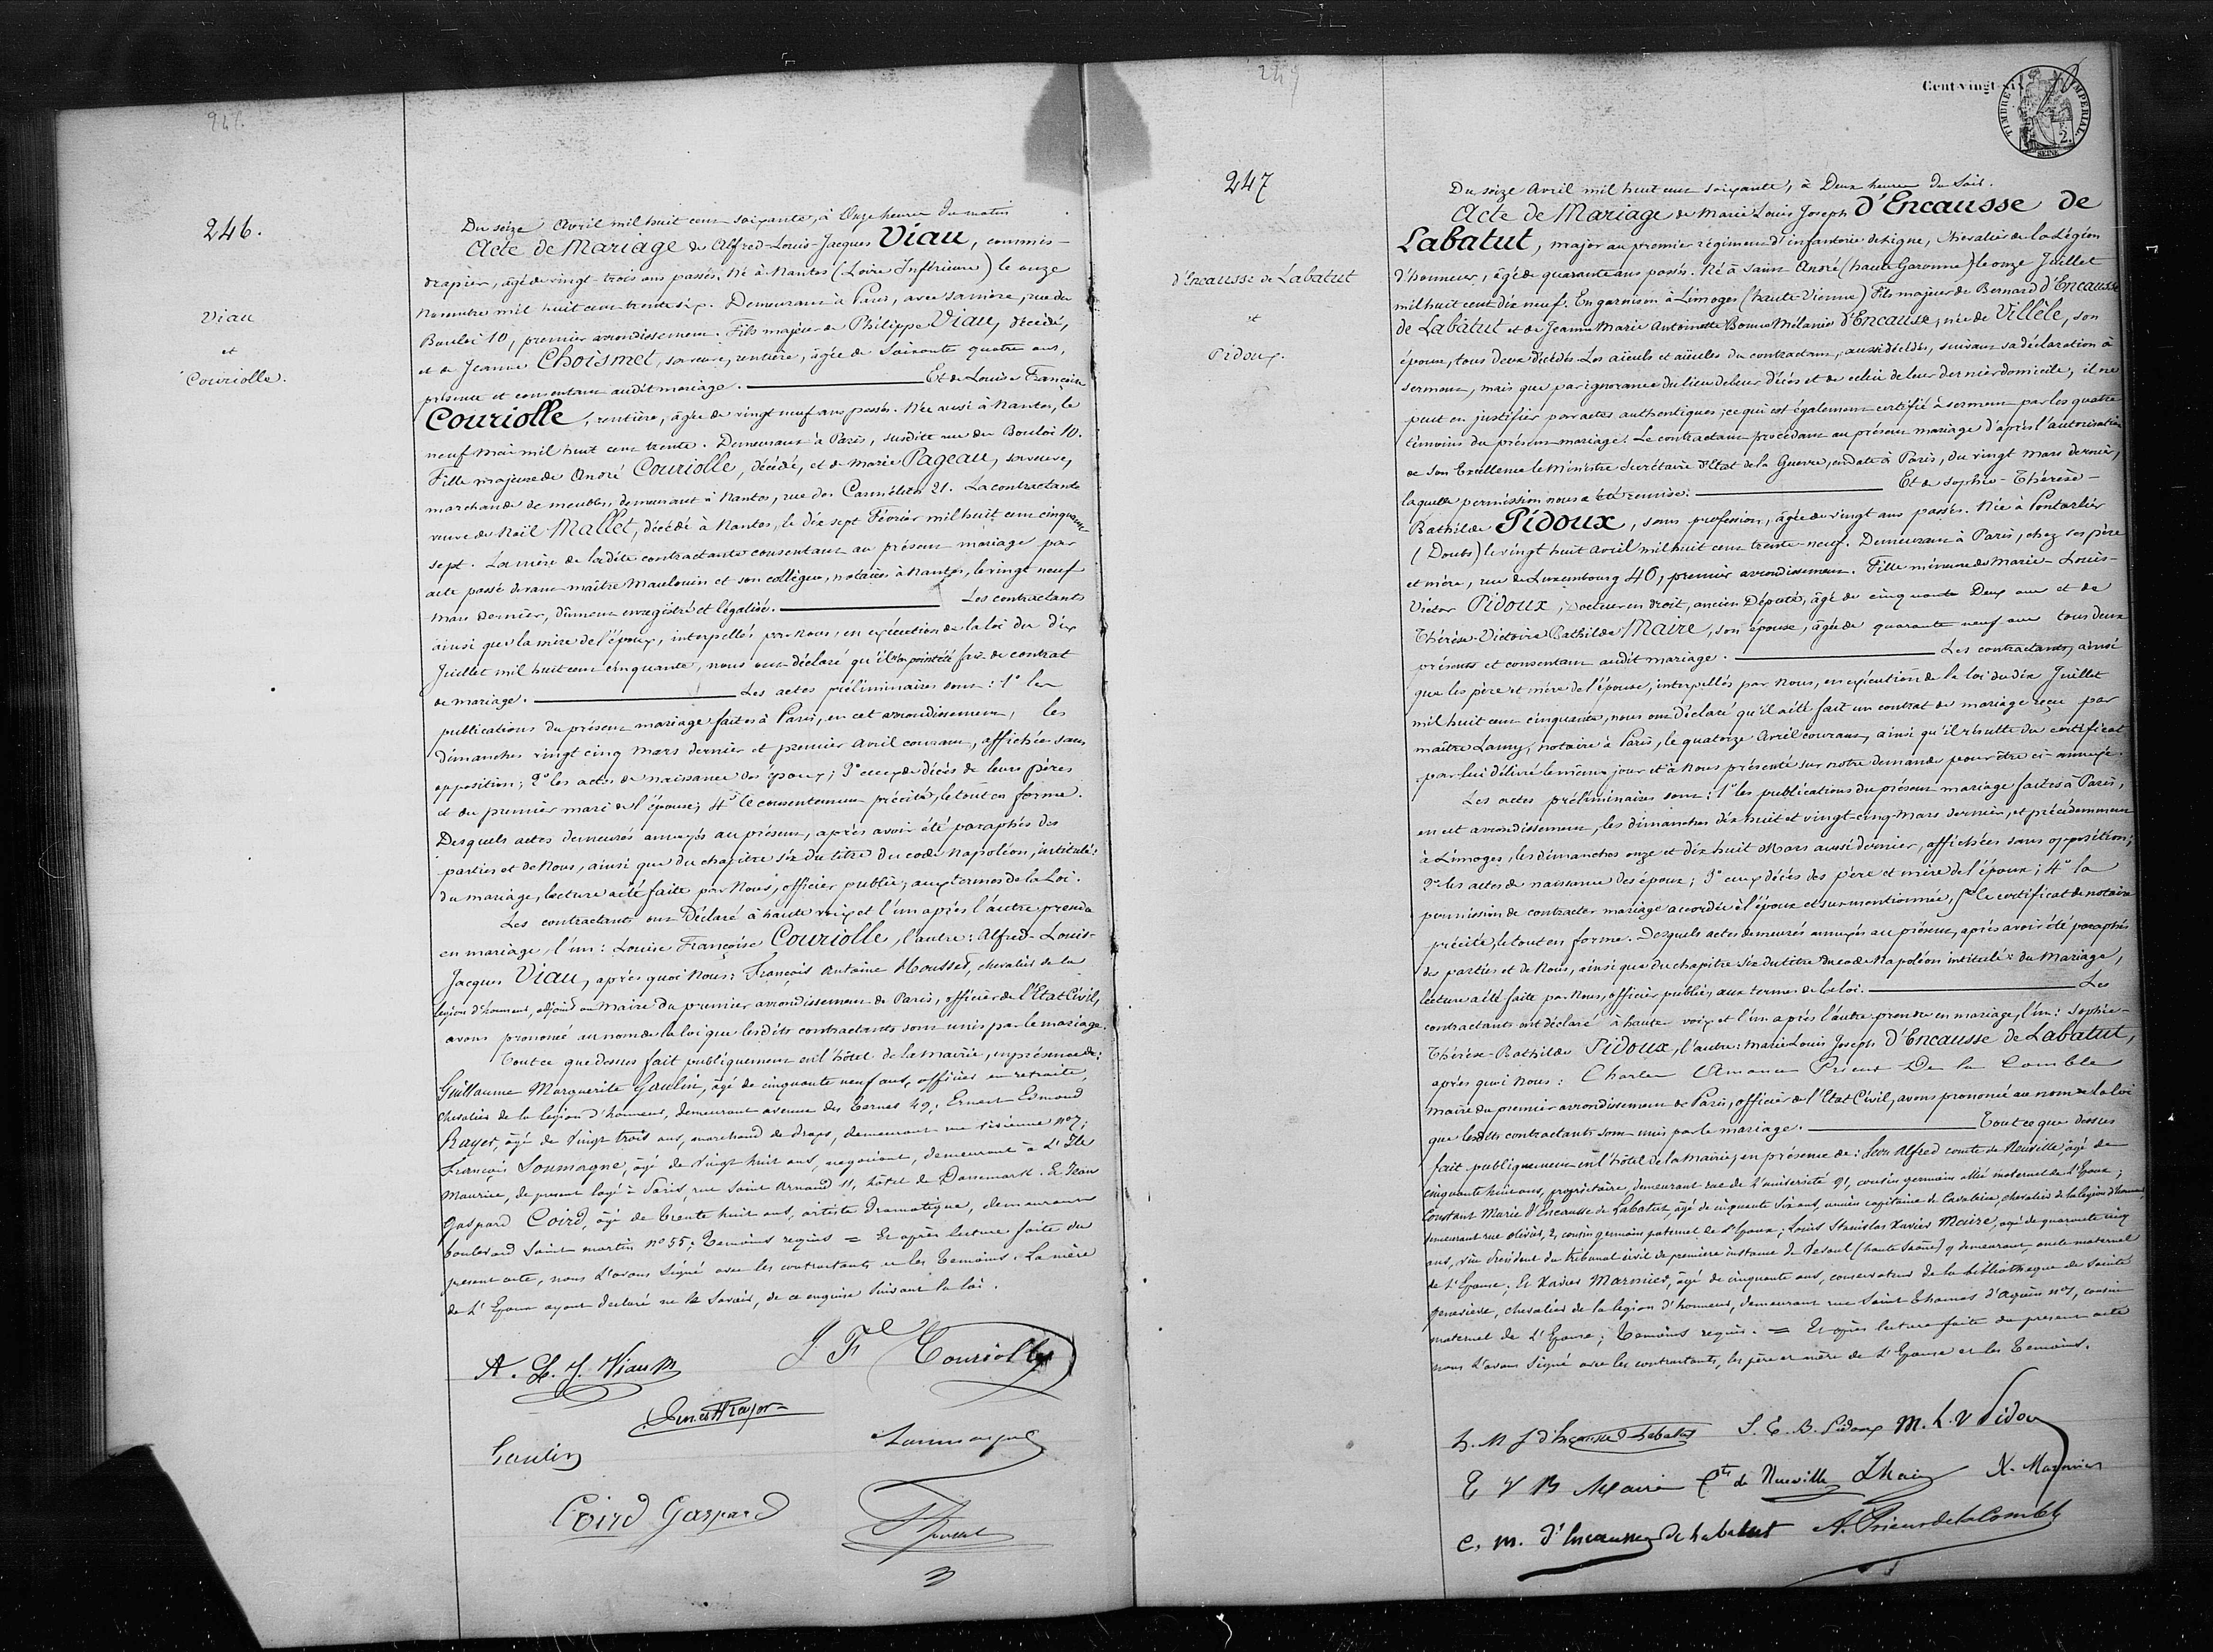 246.
Viau
et
Couriolle.
Du seize Avril mil huit cent soixante, à Onze heures du matin
Acte de Mariage de Alfred-Louis-Jacques Viau, commis-
drapier, âgé de vingt-trois ans passés. Né à Nantes (Loire Inférieure) le onze
Novembre mil huit cent trente six. Demeurant à Paris, avec sa mère, rue du
Bouloi 10, premier arrondissement. Fils majeur de Philippe Viau, décédé,
et de Jeanne Choismet, sa veuve, rentière, âgée de Soixante quatre ans,
présente et consentant audit mariage. Et de Louise Françoise
Couriolle, rentière, âgée de vingt neuf ans passés. Née aussi à Nantes, le
neuf Mai mil huit cent trente. Demeurant à Paris, susdite rue du Bouloi 10.
Fille majeure de André Couriolle, décédé, et de Marie Pageau, sa veuve,
marchande de meubles, demeurant à Nantes, rue des Carmélites 21. La contractante
veuve de Noël Mallet, décédé à Nantes, le dix sept Février mil huit cent cinquante
sept. La mère de ladite contractante consentant au présent mariage par
acte passé devant maître Maulouin et son collègue, notaires à Nantes, le vingt neuf
Mars dernier, dûment enregistré et légalisé. Les contractants
ainsi que la mère de l'époux, interpellés par Nous, en exécution de la loi du dix
Juillet mil huit cent cinquante, nous ont déclaré qu'il n'a point été fait de contrat
de mariage. Les actes préliminaires sont : 1° les
publications du présent mariage faites à Paris, en cet arrondissement, les
dimanches vingt cinq Mars dernier et premier Avril courant, affichées sans
opposition; 2° les actes de naissance des époux; 3° ceux de décès de leurs pères
et du premier mari de l'épouse; 4° le consentement précité, le tout en forme.
Desquels actes demeurés annexés au présent, après avoir été paraphés des
parties et de Nous, ainsi que du chapitre six du titre du code Napoléon, intitulé:
du mariage, lecture a été faite par Nous, officier public, aux termes de la Loi.
Les contractants ont déclaré à haute voix et l'un après l'autre prendre
en mariage, l'un : Louise Françoise Couriolle, l'autre : Alfred-Louis-
Jacques Viau, après quoi Nous: François Antoine Housset, chevalier de la
légion d'honneur, adjoint au Maire du premier arrondissement de Paris, officier de l'Etat Civil,
avons prononcé au nom de la loi que lesdits contractants sont unis par le mariage.
Tout ce que dessus fait publiquement en l'hôtel de la mairie, en présence de:
Guillaume Marguerite Gaulin, âgé de cinquante neuf ans, officier en retraite,
chevalier de la légion d'honneur, demeurant avenue des Ternes 49; Ernest Edmond
Rayer, âgé de vingt trois ans, marchand de draps, demeurant rue Vivienne n° 7;
François Soumagne, âgé de vingt huit ans, négociant, demeurant à l'Ile
Maurice, de présent logé à Paris, rue Saint Arnaud 11, hôtel de Danemark. Et Jean
Gaspard Coird, âgé de trente huit ans, artiste dramatique, demeurant
boulevard Saint martin n° 55; Témoins requis = Et après lecture faite du
présent acte, nous l'avons signé avec les contractants et les témoins. La mère
de l'Epoux ayant déclaré ne le savoir, de ce enquise suivant la loi.
A. L. J. Viau
Couriolle
Ernest Rayer
Gaulin
Soumagne
Coird Gaspard
247
Cent-vingt-six
TIMBRE IMPERIAL
2.
SEINE
d'Encausse de Labatut
et
Pidoux.
Du seize Avril mil huit cent soixante, à Deux heures du Soir.
Acte de Mariage de Marie Louis Joseph d'Encausse de
Labatut, major au premier régiment d'infanterie de ligne, Chevalier de la Légion
d'honneur, âgé de quarante ans passés. Né à Saint André (haute Garonne) le onze Juillet
mil huit cent dix neuf. En garnison à Limoges (haute-Vienne) Fils majeur de Bernard d'Encausse
de Labatut et de Jeanne Marie Antoinette Bonne Mélanie d'Encausse, née de Villèle, son
épouse, tous deux décédés. Les aïeuls et aïeules du contractant, aussi décédés, suivant sa déclaration à
serment, mais que par ignorance du lieu de leur décès et de celui de leur dernier domicile, il ne
peut en justifier par actes authentiques; ce qui est également certifié à serment par les quatre
témoins du présent mariage. Le contractant procédant au présent mariage d'après l'autorisation
de Son Excellence le Ministre Secrétaire d'Etat de la Guerre, en date à Paris, du vingt Mars dernier,
laquelle permission nous a été remise. Et de Sophie-Thérèse-
Bathilde Pidoux, sans profession, âgée de vingt ans passés. Née à Pontarlier
(Doubs) le vingt huit avril mil huit cent trente-neuf. Demeurant à Paris, chez ses père
et mère, rue de Luxembourg 40, premier arrondissement. Fille mineure de Marie-Louis-
Victor Pidoux, Docteur en droit, ancien Député, âgé de cinquante Deux ans et de
Thérèse-Victoire Bathilde Maire, son épouse, âgée de quarante neuf ans tous deux
présents et consentant audit mariage. Les contractants, ainsi
que les père et mère de l'épouse, interpellés par Nous, en exécution de la loi du dix Juillet
mil huit cent cinquante, nous ont déclaré qu'il a été fait un contrat de mariage reçu par
maître Lamy, notaire à Paris, le quatorze Avril courant, ainsi qu'il résulte du certificat
par lui délivré le même jour et à Nous présenté sur notre demande pour être ci-annexé.
Les actes préliminaires sont : 1° les publications du présent mariage faites à Paris,
en cet arrondissement, les dimanches dix huit et vingt-cinq Mars dernier, et précédemment
à Limoges, les dimanches onze et dix huit Mars aussi dernier, affichées sans opposition;
2° les actes de naissance des époux; 3° ceux décès des père et mère de l'époux; 4° la
permission de contracter mariage accordée à l'époux et susmentionnée, 5° le certificat de notaire
précité, le tout en forme. Desquels actes demeurés annexés au présent, après avoir été paraphés
des parties et de Nous, ainsi que du chapitre six du titre du code Napoléon intitulé: du Mariage,
lecture a été faite par Nous, officier public, aux termes de la loi. Les
contractants ont déclaré à haute voix et l'un après l'autre prendre en mariage, l'un : Sophie-
Thérèse-Bathilde Pidoux, l'autre: Marie Louis Joseph d'Encausse de Labatut,
après quoi Nous : Charles Amance Prieur De la Comble
maire du premier arrondissement de Paris, officier de l'Etat Civil, avons prononcé au nom de la loi
que lesdits contractants sont unis par le mariage. Tout ce que dessus
fait publiquement en l'hôtel de la mairie, en présence de : Léon Alfred comte de Neuville, âgé de
cinquante huit ans, propriétaire, demeurant rue de l'université 91, cousin germain allié maternel de l'Epoux;
Constant Marie d'Encausse de Labatut, âgé de cinquante six ans, ancien capitaine de Cavalerie, chevalier de la légion d'honneur
demeurant rue Olivier, 2, cousin germain paternel de l'Epoux; Louis Stanislas Xavier Maire, âgé de quarante cinq
ans, vice Président du tribunal civil de première instance de Vesoul (haute Saône) y demeurant, oncle maternel
de l'Epouse; Et Xavier Marmier, âgé de cinquante ans, conservateur de la bibliothèque de Sainte
Geneviève, chevalier de la légion d'honneur, demeurant rue Saint Thomas d'Aquin n° 1, cousin
maternel de l'Epouse; Témoins requis. = Et après lecture faite du présent acte
nous l'avons signé avec les contractants, les père et mère de l'Epouse et les Témoins.
L. M. J d'Encausse de Labatut S. T. B. Pidoux M. L. V Pidoux
T V B Maire Cte de Neuville Maire X. Marmier
C. M. d'Encausse de Labatut A. Prieur de la Comble